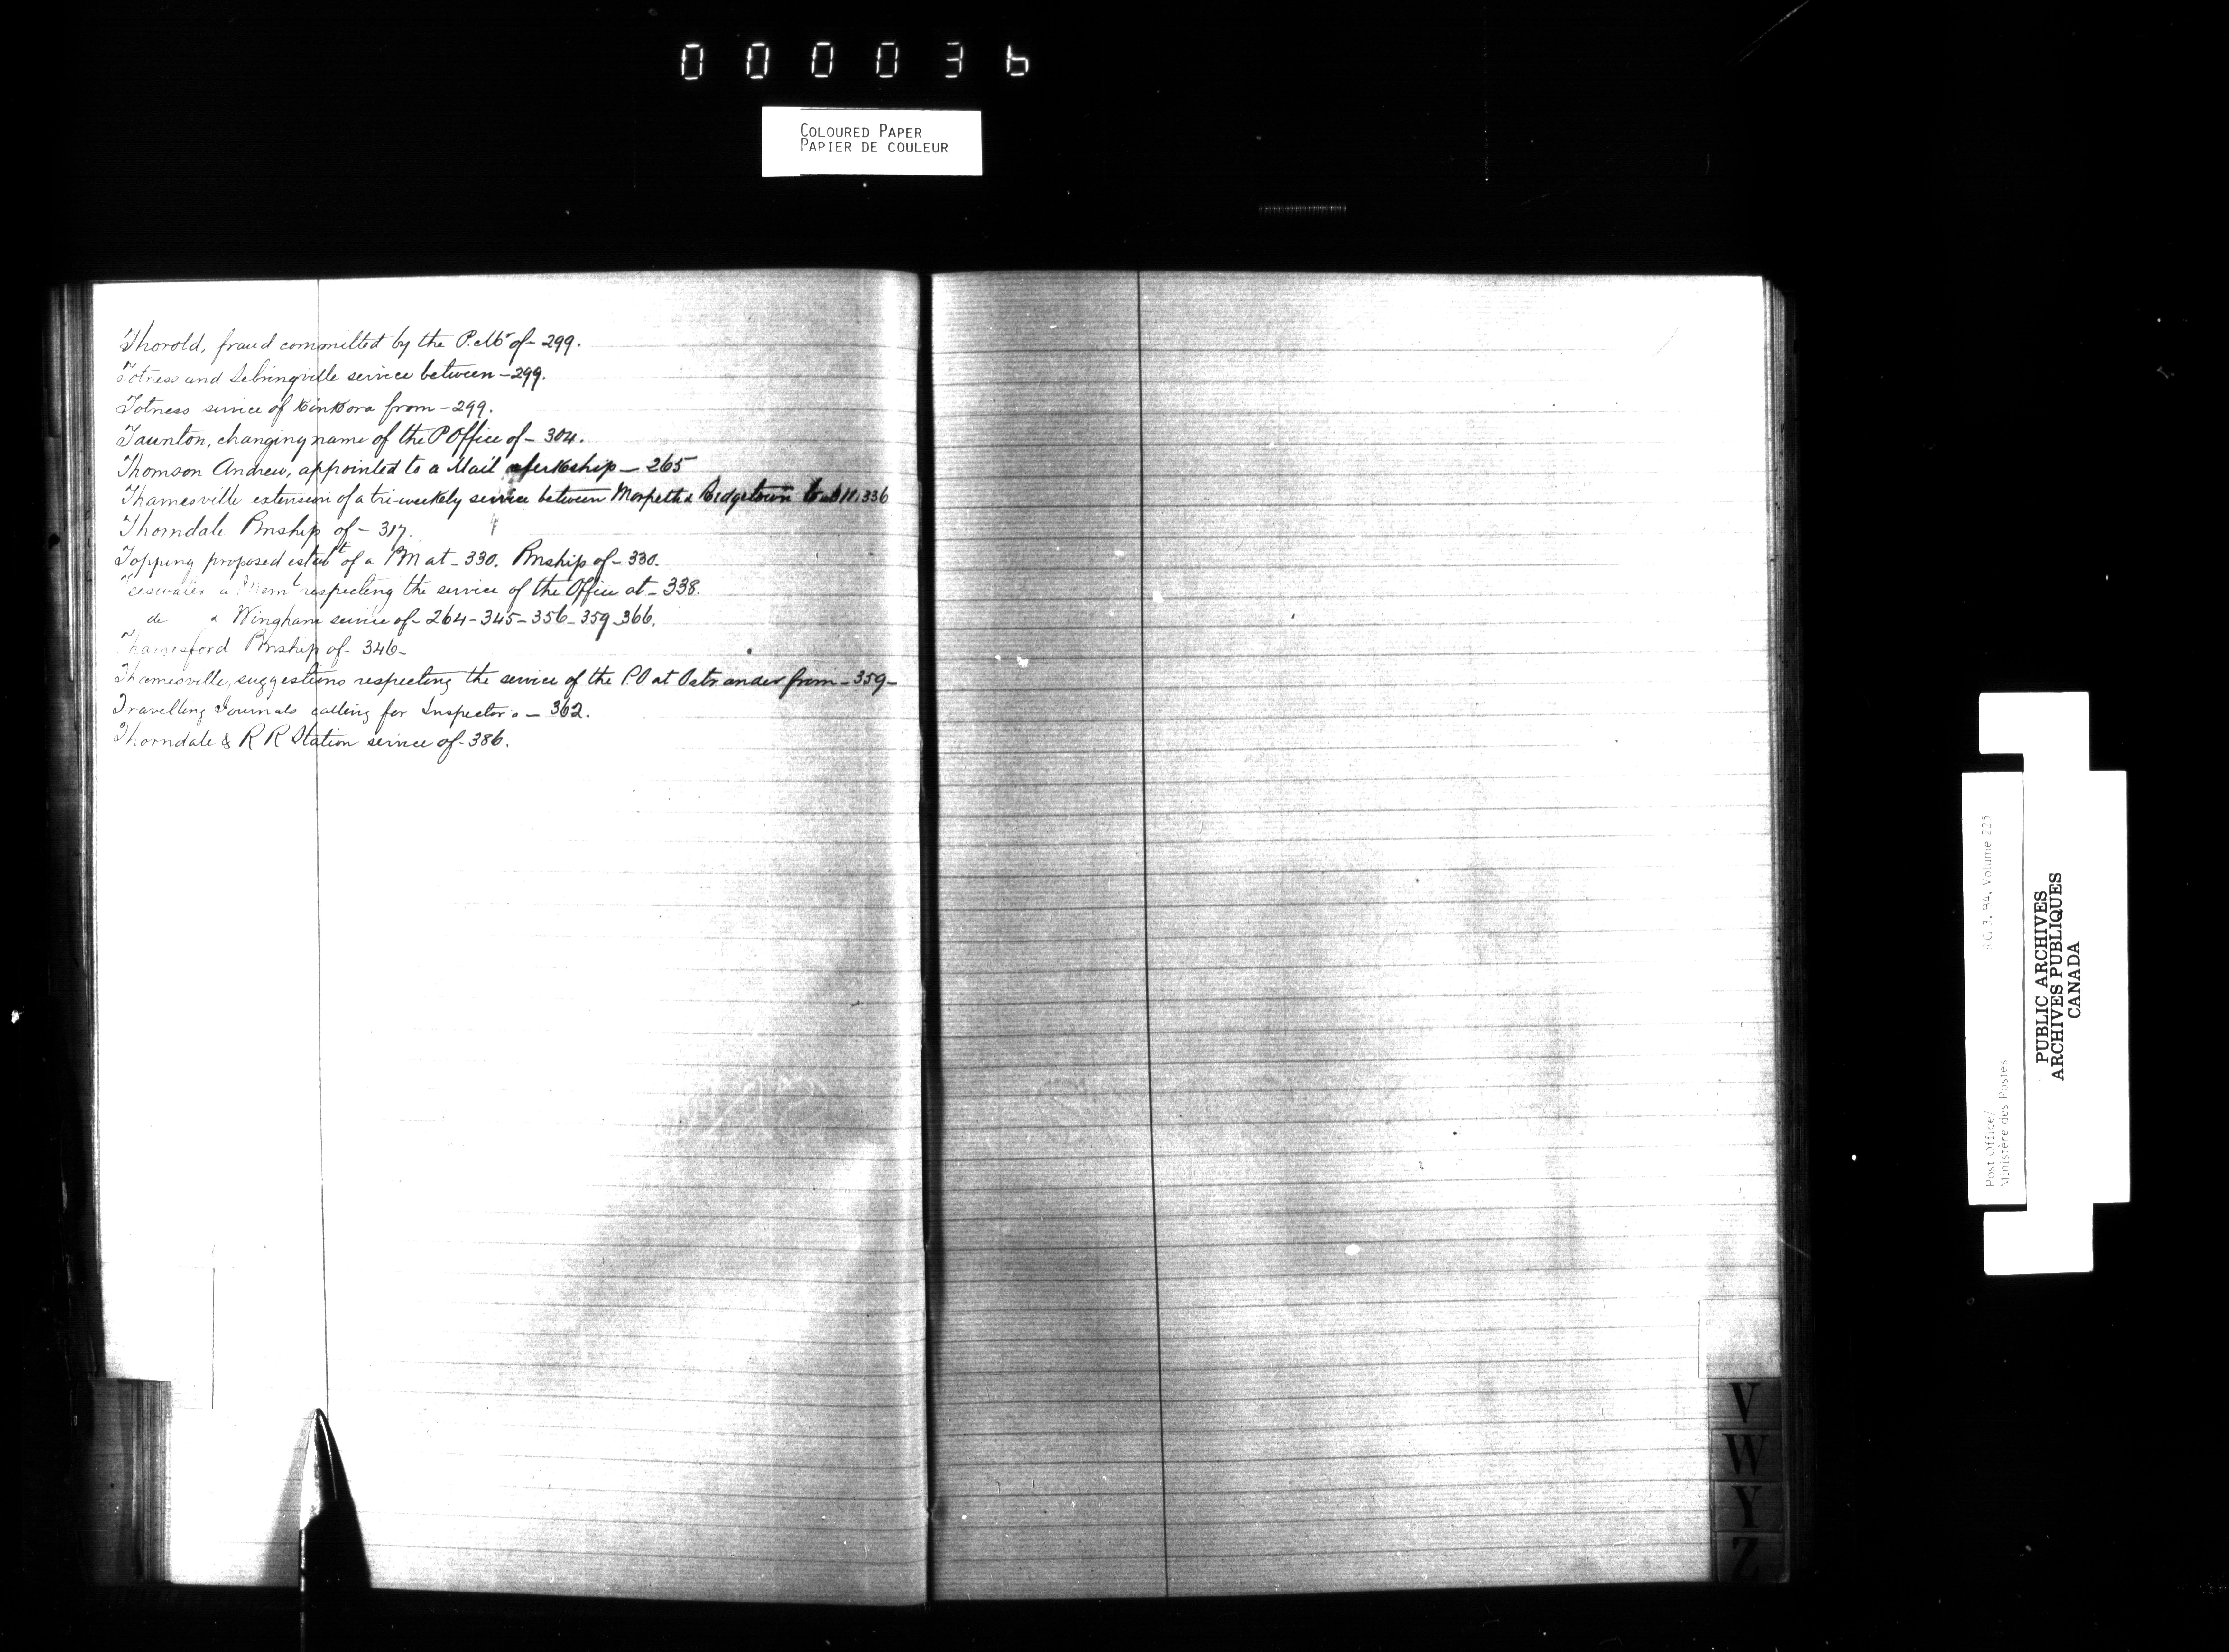 000036
COLOURED PAPER
PAPIER DE COULEUR
Thorold, fraud committed by the P. Mr of - 299.
Totness and Sebringville service between - 299.
Totness service of Kinkora from - 299.
Taunton, changing name of the P Office of - 304.
Thomson Andrew, appointed to a Mail Clerkship - 265
Thamesville extension of a tri-weekly service between Morpeth & Ridgetown to 336
Thorndale Pmship of - 317.
Topping proposed estabt of a PM at - 330. Pmship of - 330.
Teeswater a Memt respecting the service of the Office at - 338.
do & Wingham service of - 264 - 345 - 356 - 359 - 366.
Thamesford Pmship of - 346 -
Thamesville, suggestions respecting the service of the P.O at Ostrander from - 359 -
Travelling Journals calling for Inspectors - 362.
Thorndale & R R Station service of - 386.
V
W
Y
Z
Post Office/ RG 3, B4, Volume 225
Ministère des Postes
PUBLIC ARCHIVES
ARCHIVES PUBLIQUES
CANADA